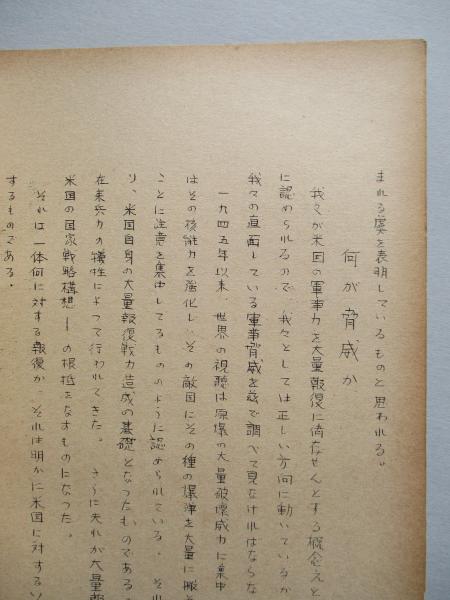 まれる處を表明しているものと思われる。
何が脅威か
我々が米国の軍事力を大量報復に備なせんとする概念えと
に認められるので、我々としては正しい方向に動いているか
我々の直面している軍事脅威を茲で調べて見なければならな
一九四五年以来 世界の視聴は原爆の大量破壊威力に集中
はその核能力を強化し、その敵国にその種の爆弾を大量に
ことに注意を集中してるもののように認められている。それ
り、米国自身の大量報復戦力造成の基礎となつたものである
在来兵力の犠牲によつて行われてきた。さらに夫れが大量報
米国の国家戦略構想ーの根抵をなすものになつた。
それは一体何に対する報復か、それは明かに米国に対する
するものである。